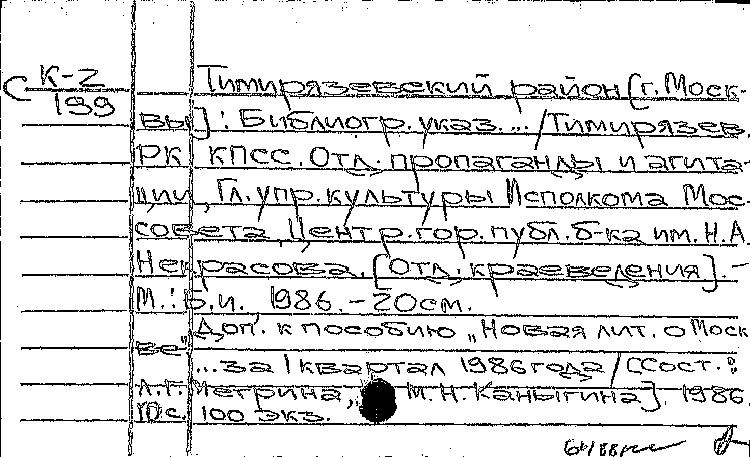 С К-2
199
Тимирязевский район [г. Моск-
вы] : Библиогр. указ. ... / Тимирязев.
РК КПСС. Отд. пропаганды и агита-
ции, Гл. упр. культуры Исполкома Мос-
совета, Центр. гор. публ. б-ка им. Н.А.
Некрасова. [Отд. краеведения]. –
М. : Б.и., 1986. – 20 см.
Доп. к пособию „Новая лит. о Моск
ве"
...за I квартал 1986 года / [Сост.:
Л.Г. Метрина, М.Н. Каныгина]. 1986.
10 с. 100 экз.